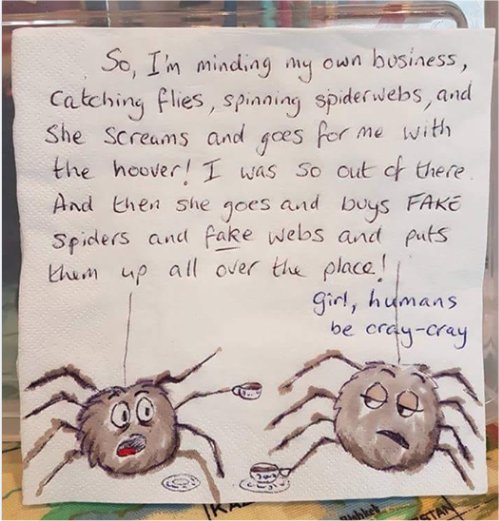 So, I'm minding my own business,
catching flies, spinning spiderwebs, and
She Screams and goes for me with
the hoover! I was so out of there.
And then she goes and buys FAKE
Spiders and fake webs and puts
them up all over the place!
girl, humans
be cray-cray